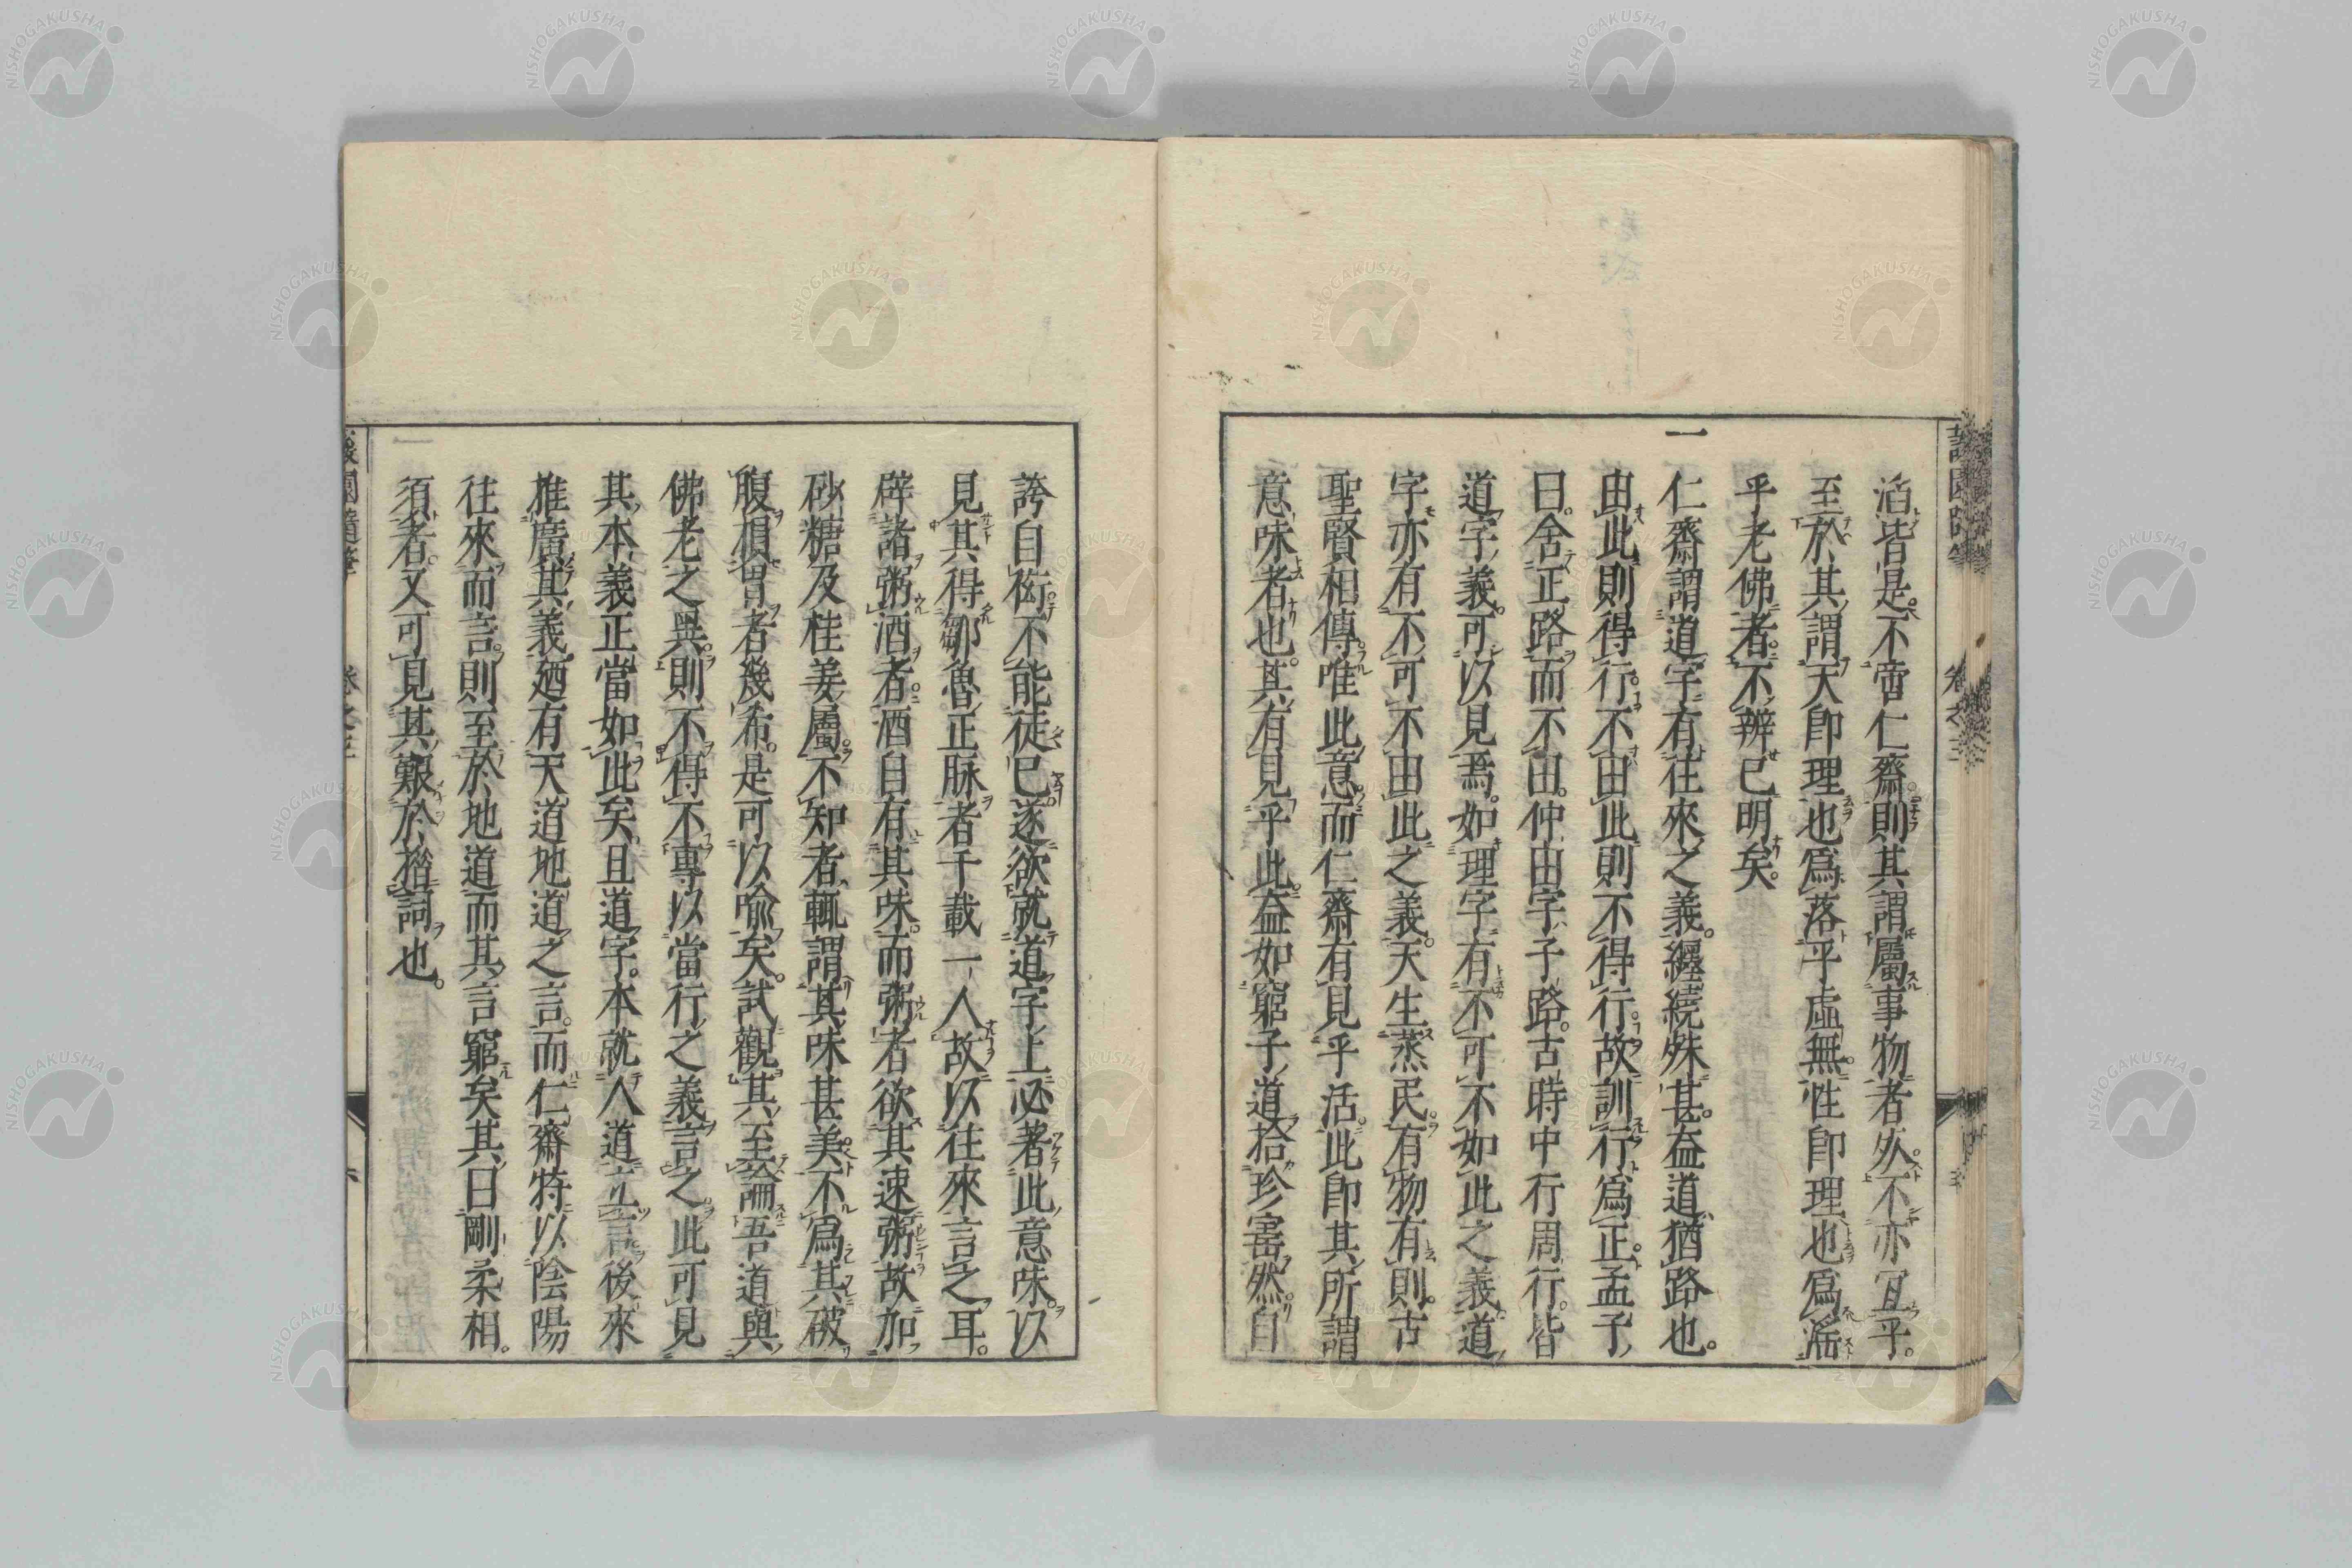 滔皆是不啻仁齋則其謂屬事物者必不亦宜乎
至於其謂天即理也爲落乎虛無性即理也爲滛
乎老佛者不辨已明矣
一仁齋謂道字有往來之義纏繞殊甚益道猶路也
由此則得行不由此則不得行故訓行爲正孟子
曰舍正路而不由仲由字子路古時中行周行皆
道字義可以見焉如理字有不可不如此之義道
字亦有不可不由此之義天生蒸民有物有則古
聖賢相傳唯此意而仁齋有見乎活此即其所謂
意味者也其有見乎此益如窮子道拾珍寚然自
誇自衒不能徒已遂欲就道字上必著此意味以
見其得鄒魯正脉者千載一人故以往來言之耳
辟諸粥酒者酒自有其味而粥者欲其速粥故加
砂糖及桂姜屬不知者輒謂其味甚美不爲其破
腹損胃者幾希是可以喩矣試觀其至論吾道與
佛老之異則不得不專以當行之義言之此可見
其本義正當如此矣且道字本就人道立言後來
推廣其義廼有天道地道之言而仁齋特以陰陽
往來而言則至於地道而其言窮矣其曰剛柔相
須者又可見其艱於措詞也